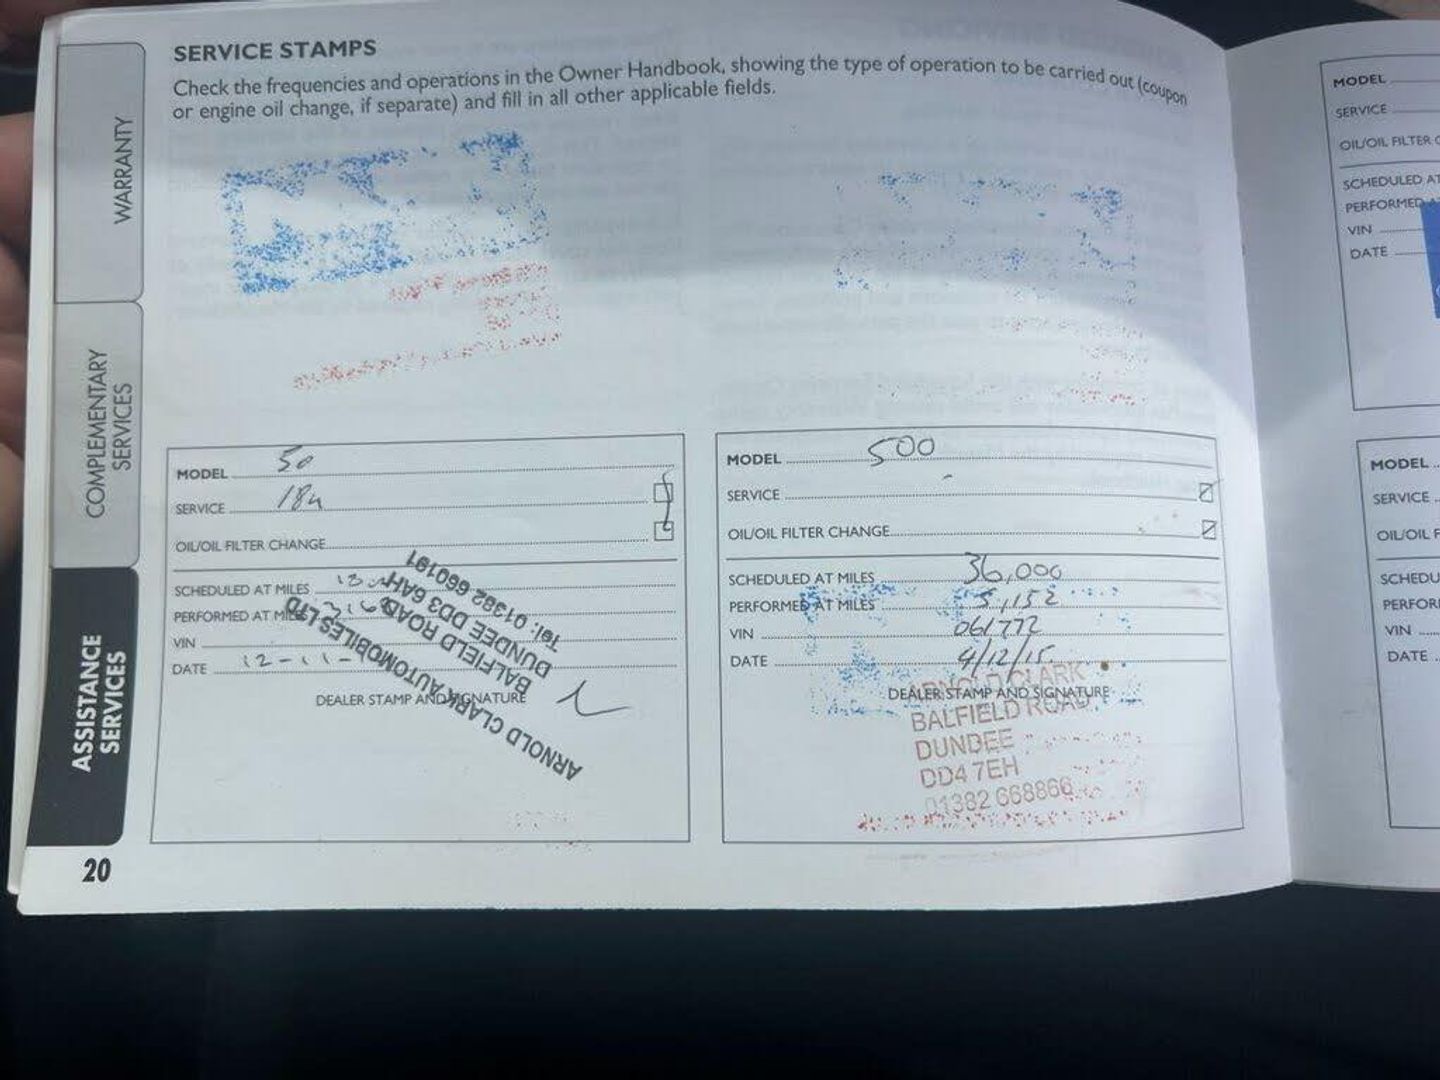 SERVICE STAMPS
Check the frequencies and operations in the Owner Handbook, showing the type of operation to be carried out (coupon
or engine oil change, if separate) and fill in all other applicable fields.
WARRANTY
COMPLEMENTARY
SERVICES
ASSISTANCE
SERVICES
MODEL 50
SERVICE 18
OIL/OIL FILTER CHANGE
SCHEDULED AT MILES
PERFORMED AT MILES
VIN
DATE 12-11-
DEALER STAMP AND SIGNATURE
ARNOLD CLARK AUTOMOBILES LTD
BALFIELD ROAD
DUNDEE DD3 6AH
Tel: 01382 660191
MODEL 500
SERVICE
OIL/OIL FILTER CHANGE
SCHEDULED AT MILES 36,000
PERFORMED AT MILES 5,152
VIN 061772
DATE 4/12/15
DEALER STAMP AND SIGNATURE
ARNOLD CLARK
BALFIELD ROAD
DUNDEE
DD4 7EH
01382 668866
20
MODEL
SERVICE
OIL/OIL FILTER
SCHEDULED AT
PERFORMED
VIN
DATE
MODEL
SERVICE
OIL/OIL F
SCHEDU
PERFOR
VIN
DATE